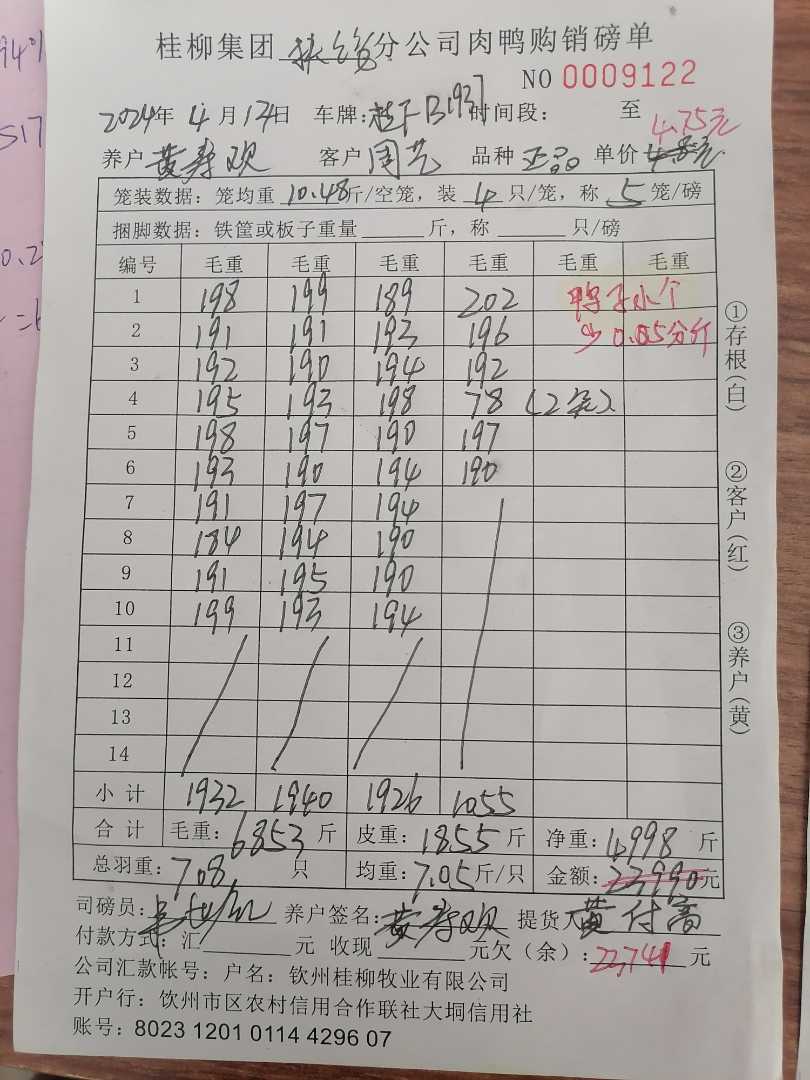 桂柳集团 分公司肉鸭购销磅单
NO 0009122
2024年 4月17日 车牌:桂 B1937 时间段: 至
4.75元
养户 黄寿观 客户 周艺 品种 正品 单价
笼装数据:笼均重 10.48斤/空笼,装 4 只/笼,称 5 笼/磅
捆脚数据:铁筐或板子重量 斤,称 只/磅
编号 毛重 毛重 毛重 毛重 毛重 毛重
1 198 199 189 202 鸭子小个
2 191 191 193 196 少0.05分斤
3 192 190 194 192
4 195 193 198 78 (2笼)
5 198 197 190 197
6 193 190 194 190
7 191 197 194
8 184 194 190
9 191 195 190
10 199 193 194
11
12
13
14
小计 1932 1940 1926 1055
合计 毛重:6853斤 皮重:1855斤 净重:4998斤
总羽重:708 只 均重:7.05斤/只 金额:23,990元
司磅员: 养户签名:黄寿观 提货人 黄付高
付款方式:汇 元 收现 元欠(余):23,741 元
公司汇款帐号:户名:钦州桂柳牧业有限公司
开户行:饮州市区农村信用合作联社大垌信用社
账号:8023 1201 0114 4296 07
①存根(白)
②客户(红)
③养户(黄)
94%
S17
0.2